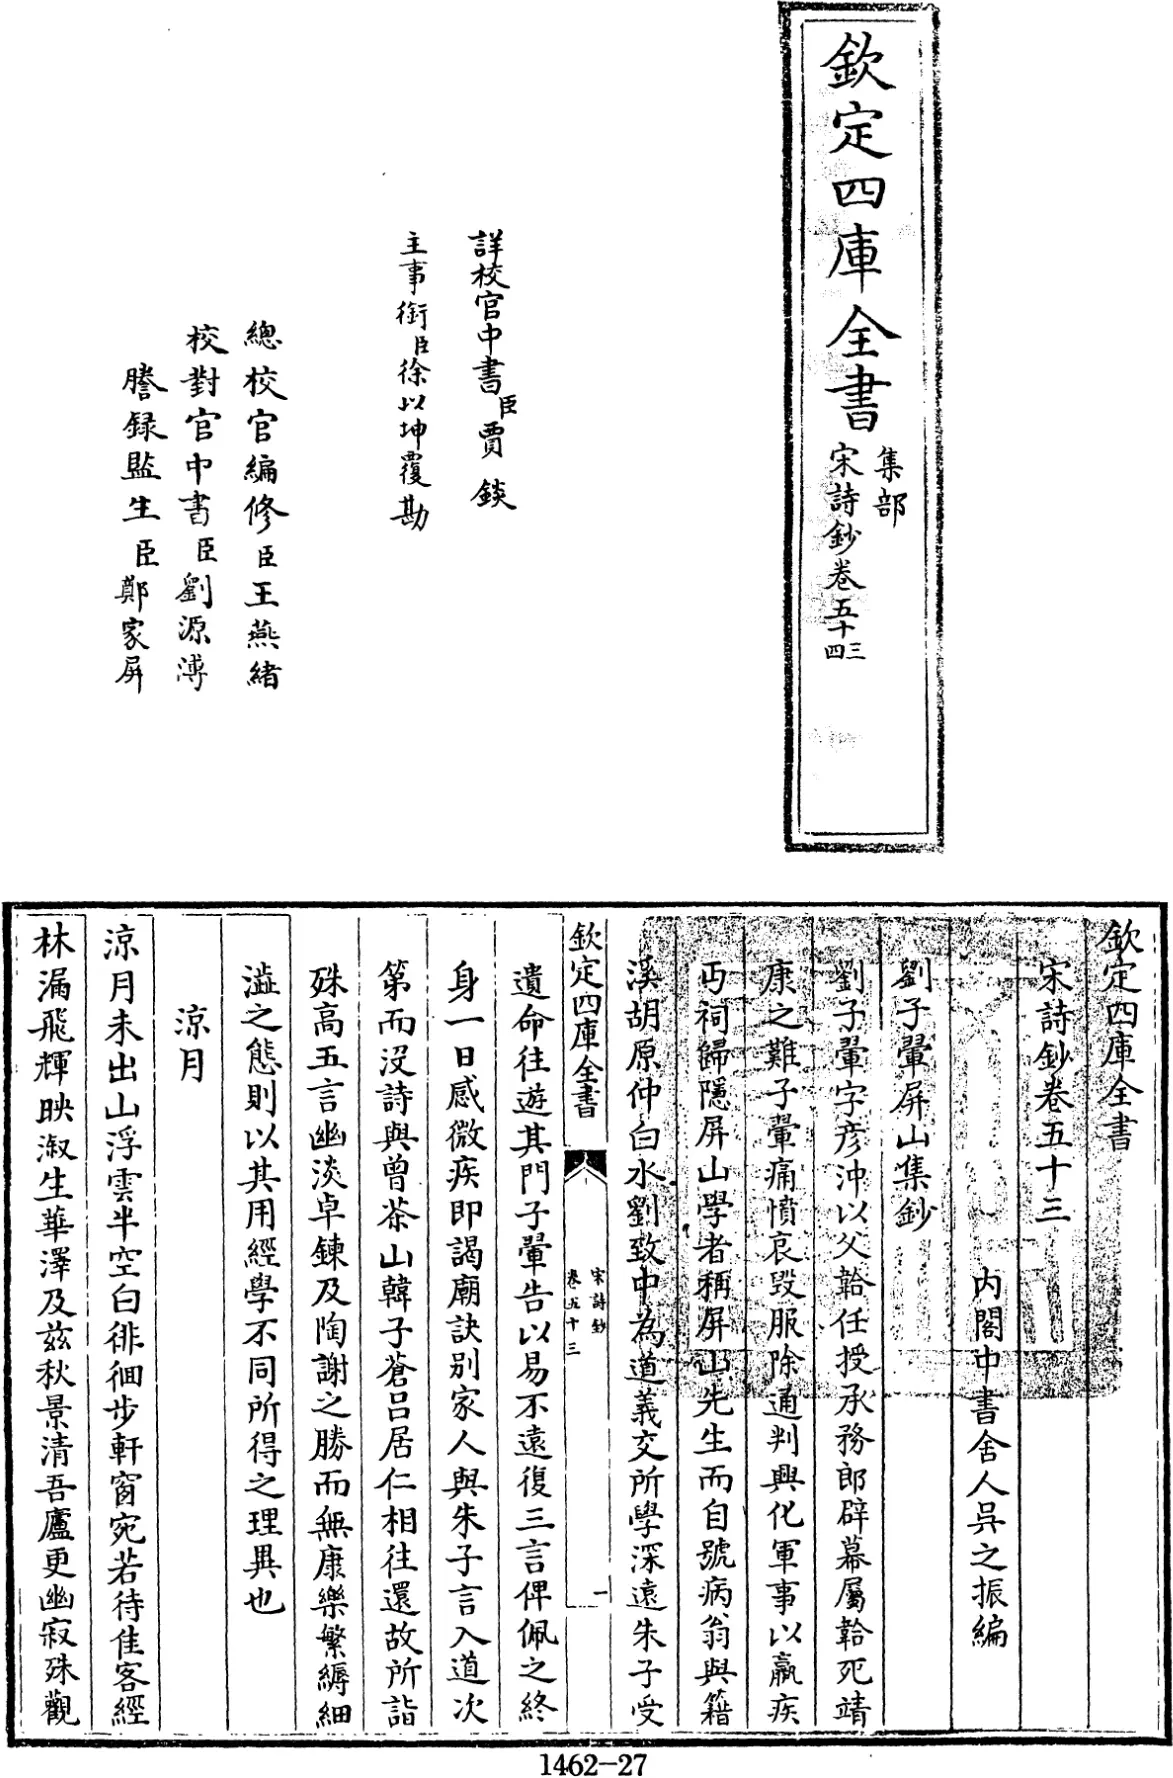 欽定四庫全書
集部
宋詩鈔卷五十三
四
詳校官中書臣賈錟
主事銜臣徐以坤覆勘
總校官編修臣王燕緒
校對官中書臣劉源溥
謄録監生臣鄭家屏
欽定四庫全書
宋詩鈔卷五十三
内閣中書舍人吳之振編
劉子翬屏山集鈔
劉子翬字彦沖以父韐任授承務郎辟幕屬韐死靖
康之難子翬痛憤哀毀服除通判興化軍事以羸疾
丐祠歸隱屏山學者稱屏山先生而自號病翁與籍
溪胡原仲白水劉致中為道義交所學深遠朱子受
欽定四庫全書
宋詩鈔
卷五十三
一
遺命往遊其門子翬告以易不遠復三言俾佩之終
身一日感微疾即謁廟訣別家人與朱子言入道次
第而沒詩與曾茶山韓子蒼吕居仁相往還故所詣
殊高五言幽淡卓鍊及陶謝之勝而無康樂繁縟細
澁之態則以其用經學不同所得之理異也
涼月
涼月未出山浮雲半空白徘徊步軒窗宛若待佳客經
林漏飛輝映淑生華澤及兹秋景清吾廬更幽寂殊觀
1462-27